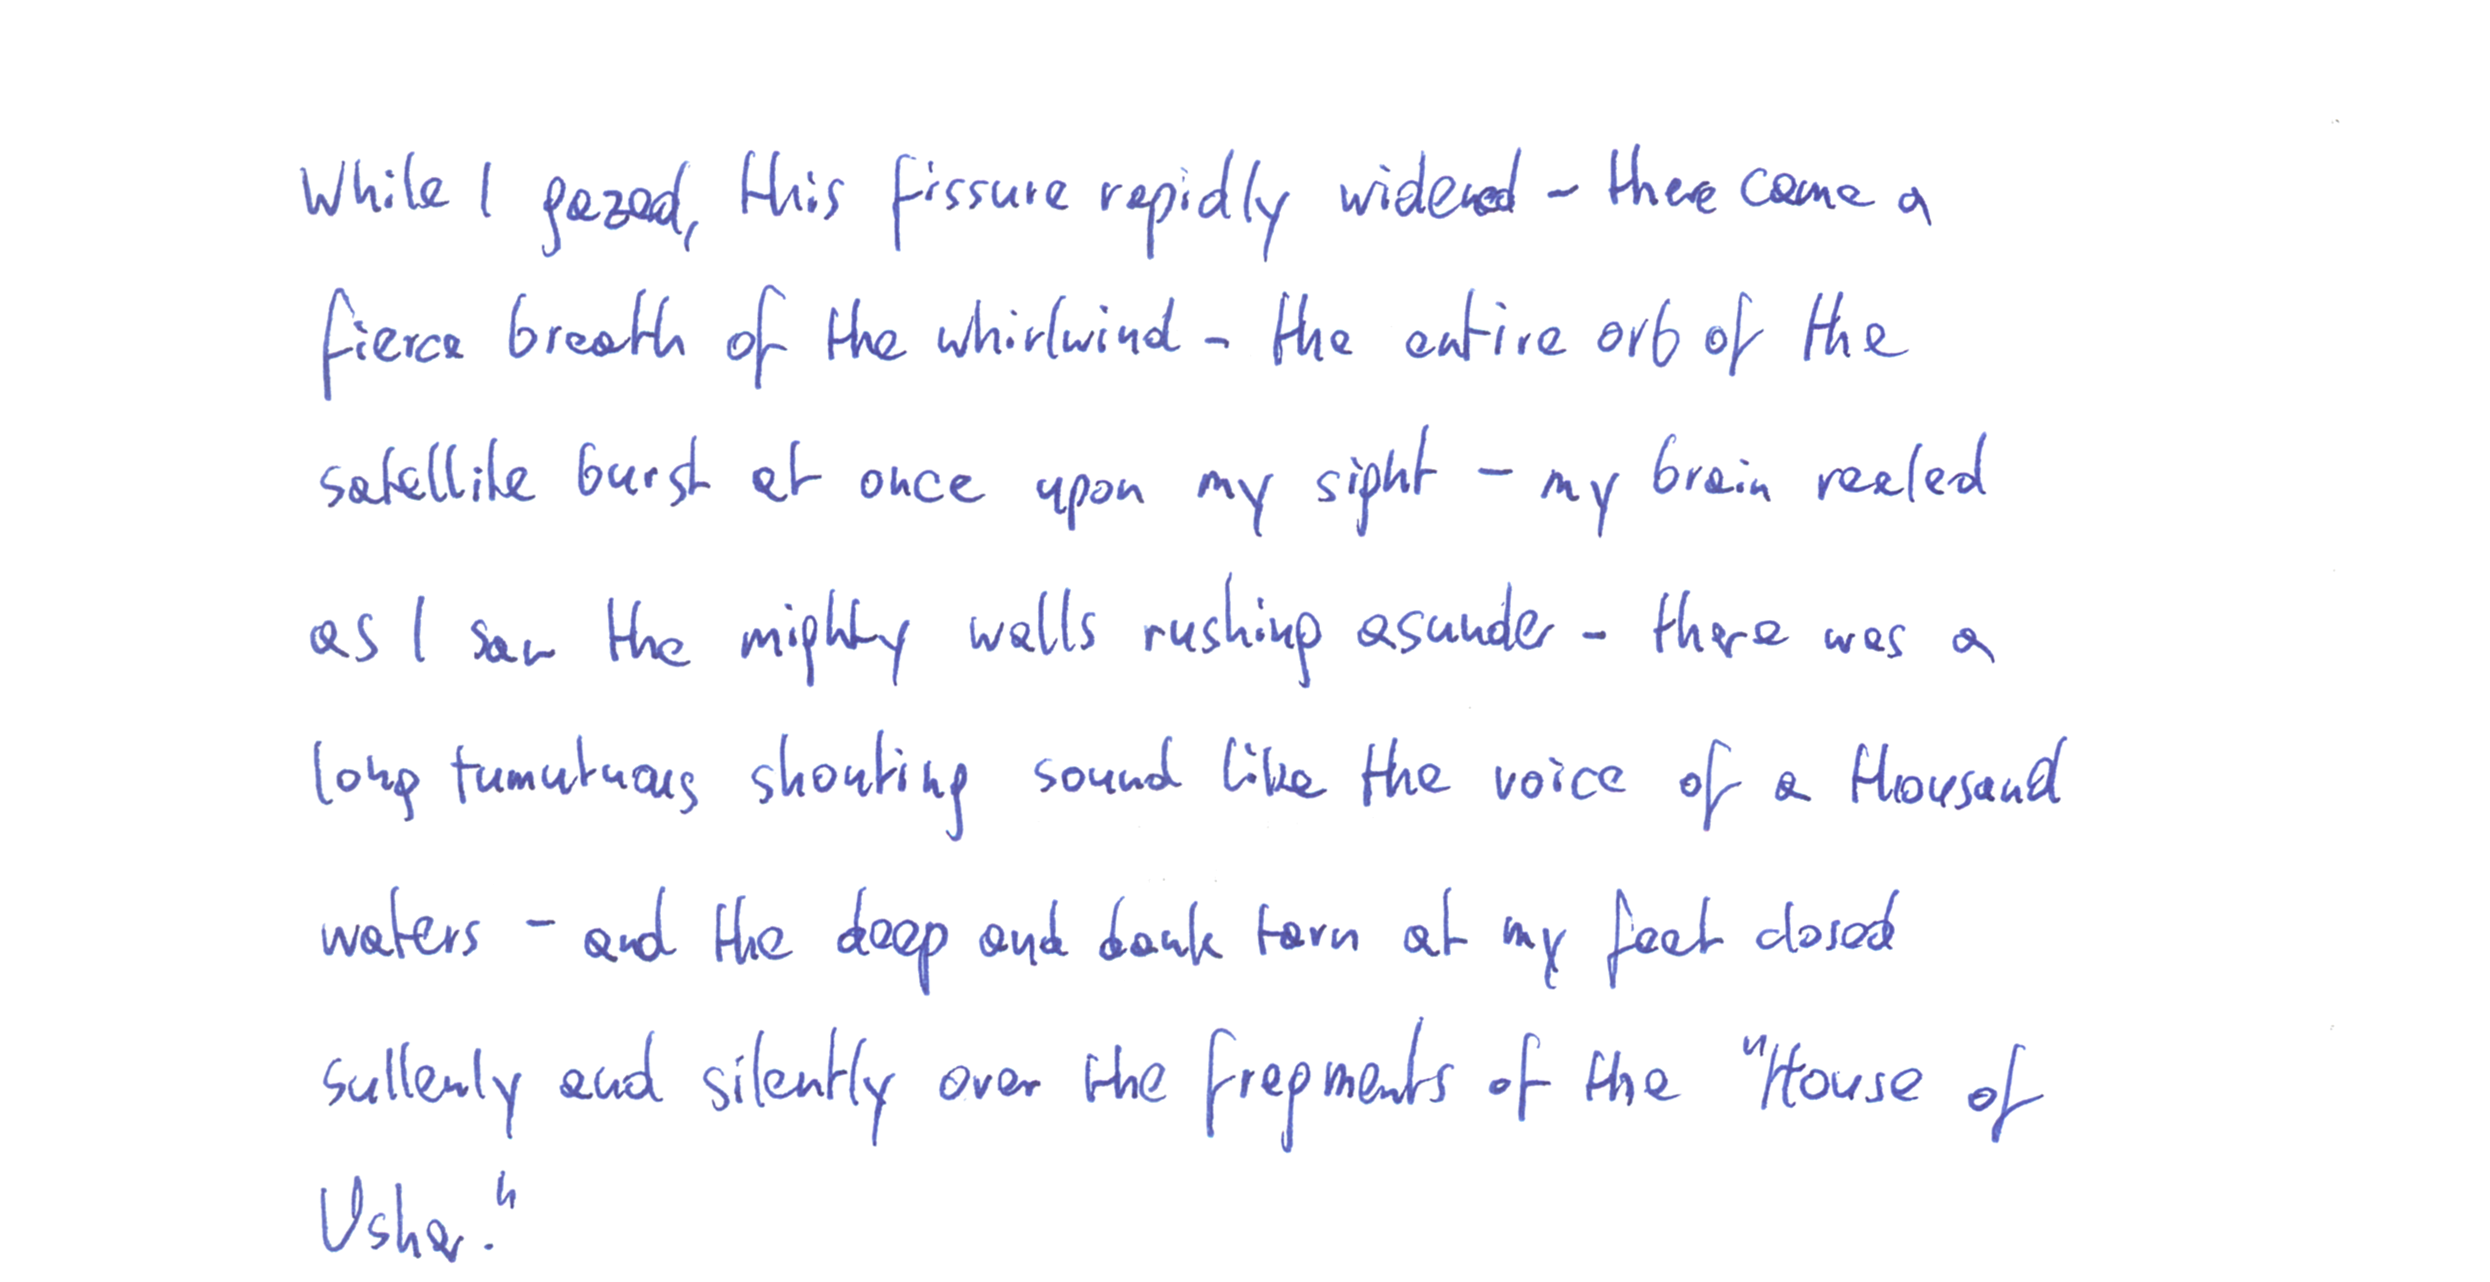 While I gazed, this fissure rapidly widened - there came a
fierce breath of the whirlwind - the entire orb of the
satellite burst at once upon my sight - my brain reeled
as I saw the mighty walls rushing asunder - there was a
long tumutuous shouting sound like the voice of a thousand
waters - and the deep and dank tarn at my feet closed
sullenly and silently over the fragments of the "House of
Usher."